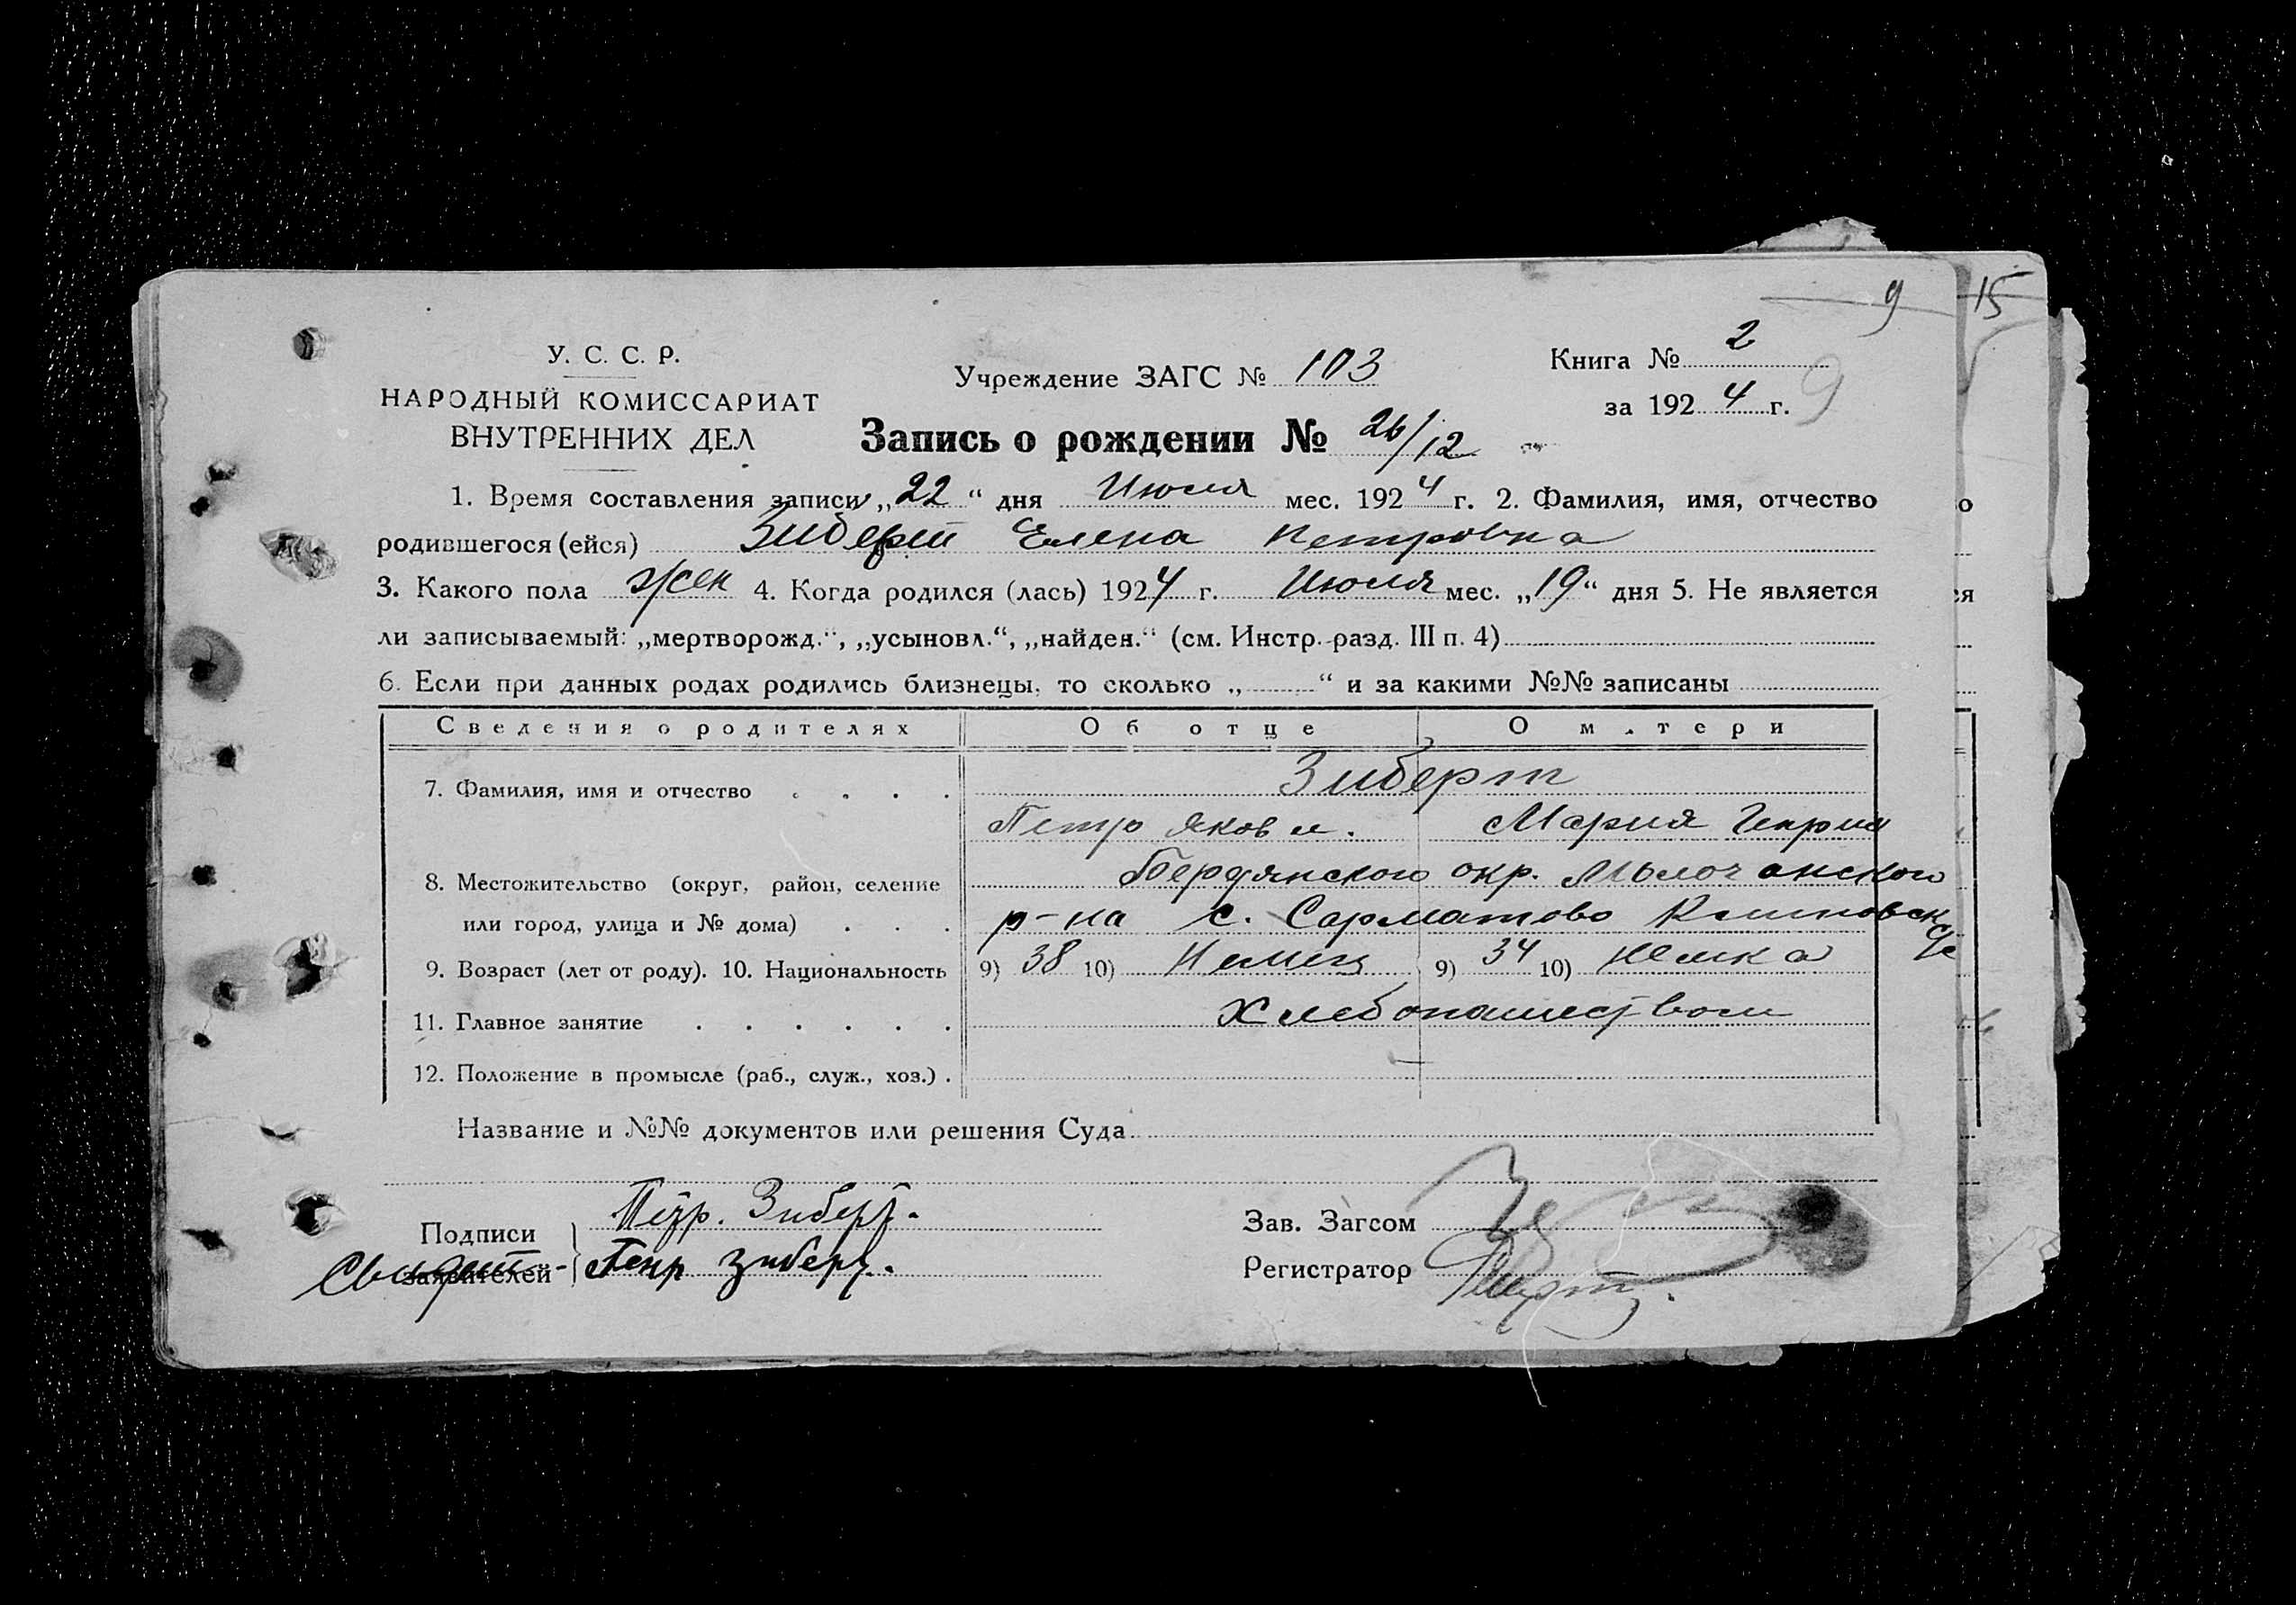 9 15
У. С. С. Р.
НАРОДНЫЙ КОМИССАРИАТ
ВНУТРЕННИХ ДЕЛ
Учреждение ЗАГС № 103
Книга № 2
за 1924 г. 9
Запись о рождении № 26/12
1. Время составления записи „22“ дня Июля мес. 1924 г. 2. Фамилия, имя, отчество
родившегося (ейся) Зиберт Елена Петровна
3. Какого пола жен 4. Когда родился (лась) 1924 г. Июля мес. „19“ дня 5. Не является
ли записываемый: „мертворожд.“, „усыновл.“, „найден.“ (см. Инстр. разд. III п. 4)
6. Если при данных родах родились близнецы, то сколько „ “ и за какими №№ записаны
Сведения о родителях Об отце О м.тери
7. Фамилия, имя и отчество . . . . Зиберт
Петр Яковл. Мария Генрих
8. Местожительство (округ, район, селение Бердянского окр. Молочанского
или город, улица и № дома) . . . р-на с. Сарматово
9. Возраст (лет от роду). 10. Национальность 9) 38 10) Немец 9) 34 10) немка
11. Главное занятие . . . . . . Хлебопашеством
12. Положение в промысле (раб., служ., хоз.) . —
Название и №№ документов или решения Суда
Подписи Петр. Зиберт.
заявителей Свидет. Генр Зиберт.
Зав. Загсом
Регистратор
о
ся